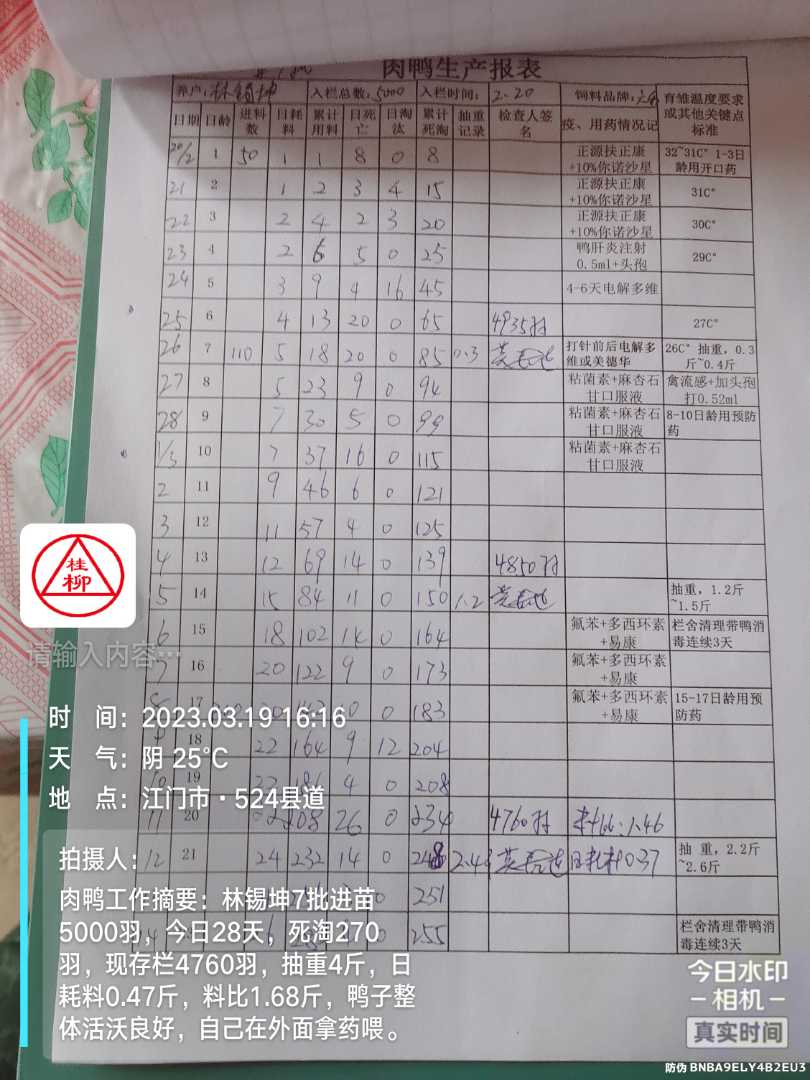 肉鸭生产报表
养户: 林锡坤 入栏总数: 5000 入栏时间: 2.20 饲料品牌:
日期 日龄 进料数 日耗料 累计用料 日死亡 日淘汰 累计死淘 抽重记录 检查人签名 疫、用药情况记 育雏温度要求或其他关键点标准
20/2 1 50 1 1 8 0 8 正源扶正康+10%你诺沙星 32~31C° 1-3日龄用开口药
21 2 1 2 3 4 15 正源扶正康+10%你诺沙星 31C°
22 3 2 4 2 3 20 正源扶正康+10%你诺沙星 30C°
23 4 2 6 5 0 25 鸭肝炎注射0.5ml+头孢 29C°
24 5 3 9 4 16 45 4-6天电解多维
25 6 4 13 20 0 65 4935羽 27C°
26 7 110 5 18 20 0 85 0.3 打针前后电解多维或美德华 26C° 抽重，0.3斤~0.4斤
27 8 5 23 9 0 94 粘菌素+麻杏石甘口服液 禽流感+加头孢打0.52ml
28 9 7 30 5 0 99 粘菌素+麻杏石甘口服液 8-10日龄用预防药
1/3 10 7 37 16 0 115 粘菌素+麻杏石甘口服液
2 11 9 46 6 0 121
3 12 11 57 4 0 125
4 13 12 69 14 0 139 4850羽
5 14 15 84 11 0 150 1.2 抽重，1.2斤~1.5斤
6 15 18 102 14 0 164 氟苯+多西环素+易康 栏舍清理带鸭消毒连续3天
7 16 20 122 9 0 173 氟苯+多西环素+易康
8 17 0 183 氟苯+多西环素+易康 15-17日龄用预防药
9 18 22 164 9 12 204
10 19 22 186 4 0 208
11 20 22 208 26 0 234 4760羽 料比:1.46
12 21 24 232 14 0 248 2.43 日耗料0.37 抽 重，2.2斤~2.6斤
0 251
255 栏舍清理带鸭消毒连续3天
桂
柳
请输入内容…
时 间：2023.03.19 16:16
天 气：阴 25℃
地 点：江门市·524县道
拍摄人：
肉鸭工作摘要：林锡坤7批进苗
5000羽，今日28天，死淘270
羽，现存栏4760羽，抽重4斤，日
耗料0.47斤，料比1.68斤，鸭子整
体活沃良好，自己在外面拿药喂。
今日水印
-相机-
真实时间
防伪 BNBA9ELY4B2EU3